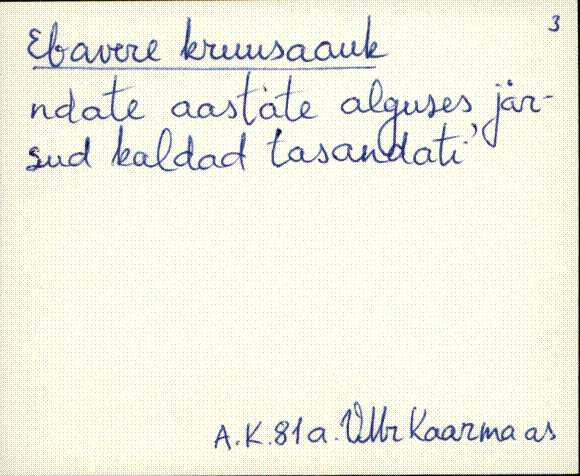 3
Ebavere kruusaauk
ndate aastate alguses jär-
sud kaldad tasandati'
A.K. 81 a. Kaarmaas